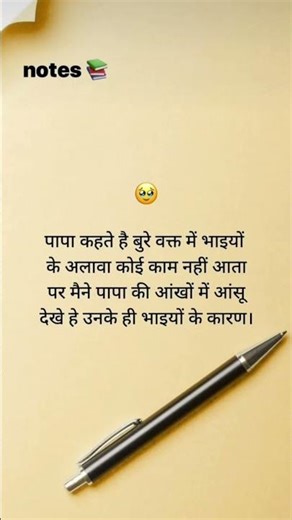 notes 📚
🥹
पापा कहते है बुरे वक्त में भाइयों
के अलावा कोई काम नहीं आता
पर मैने पापा की आंखों में आंसू
देखे हे उनके ही भाइयों के कारण।